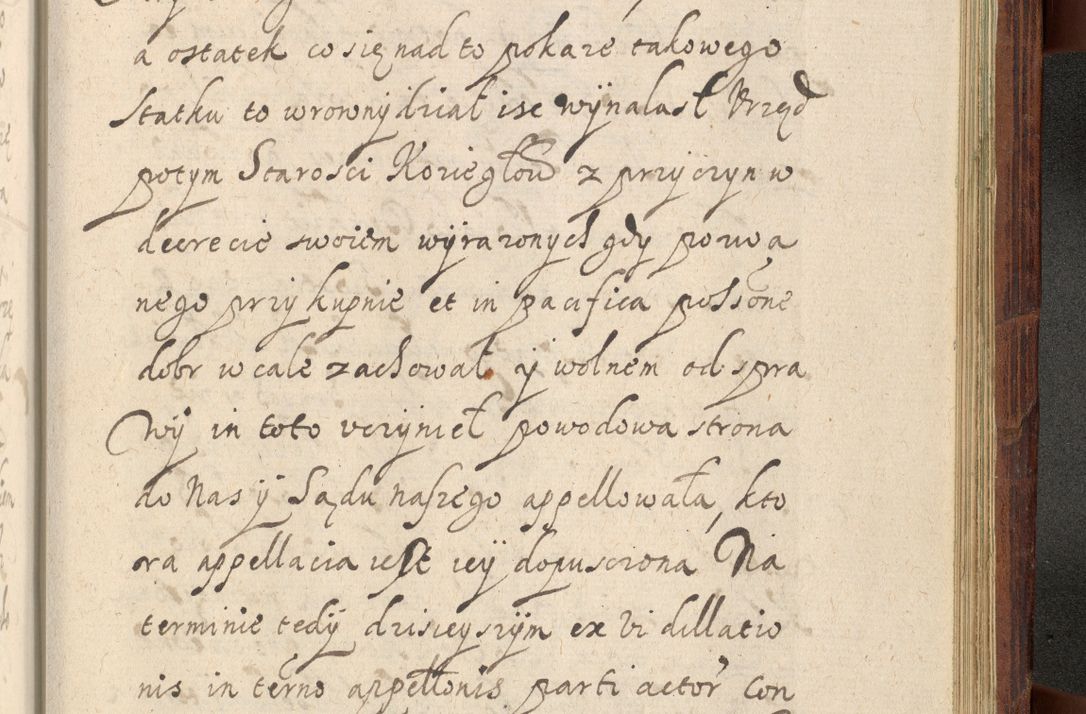 a ostatek co się nad to pokaze takowego
Statku to wrowny dział isc wÿnalasł Vrząd
potym Starosci Koziegłow z przyczyn w
decrecie swoiem wÿrazonych gdy pozwa
nego przy kupnie et in pacifica possõne
dobr wcale zachował y wolnem od spra
wÿ in toto vczÿnieł powodowa strona
do Nas ÿ Sądu naszego appellowała, kto
ra appellacia iest ieÿ dopusczona Na
terminie tedÿ dzisieyszÿm ex vi dillatio
nis in termo appellonis parti actor con